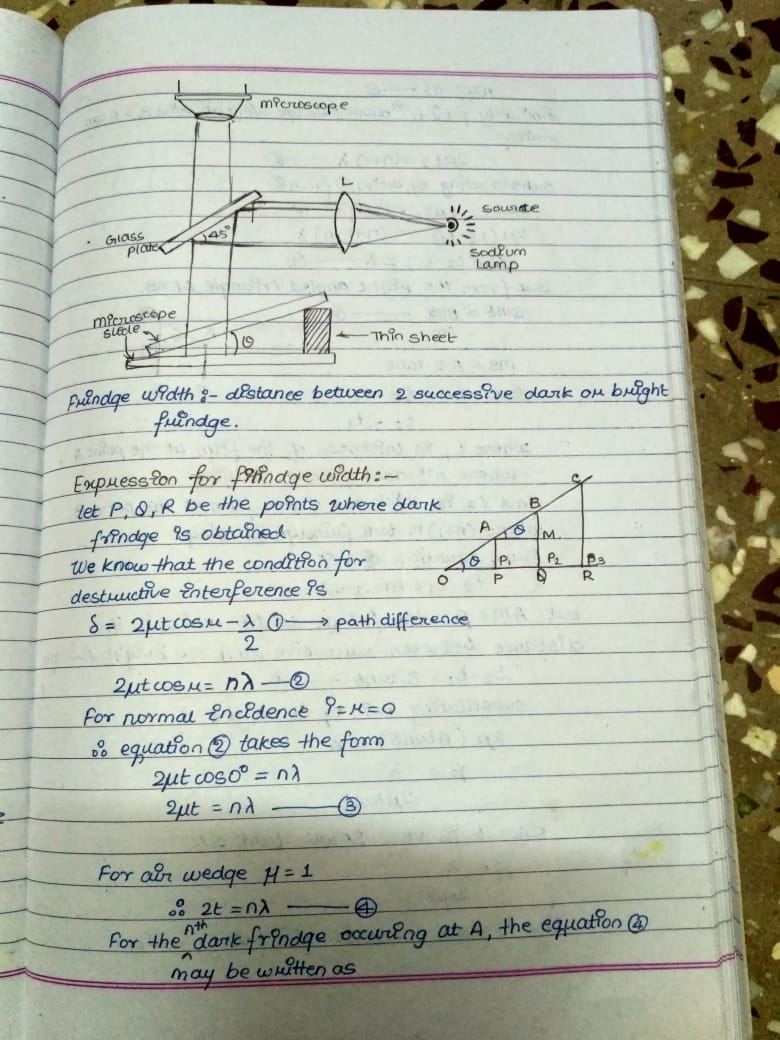 microscope
L
Source
Glass
plate
45°
Sodium
Lamp
microscope
slide
θ
Thin sheet
Frindge width :- distance between 2 successive dark or bright
frindge.
Expression for frindge width :-
let P, Q, R be the points where dark
frindge is obtained
We know that the condition for
destructive interference is
δ = 2μt cos r - λ/2 ① → path difference
C
B
A
θ
M
O
θ
P₁
P₂
P₃
P
Q
R
2μt cos r = nλ — ②
For normal incidence i = r = 0
∴ equation ② takes the form
2μt cos 0° = nλ
2μt = nλ — ③
For air wedge μ = 1
∴ 2t = nλ — ④
For the nth dark frindge occuring at A, the equation ④
may be written as